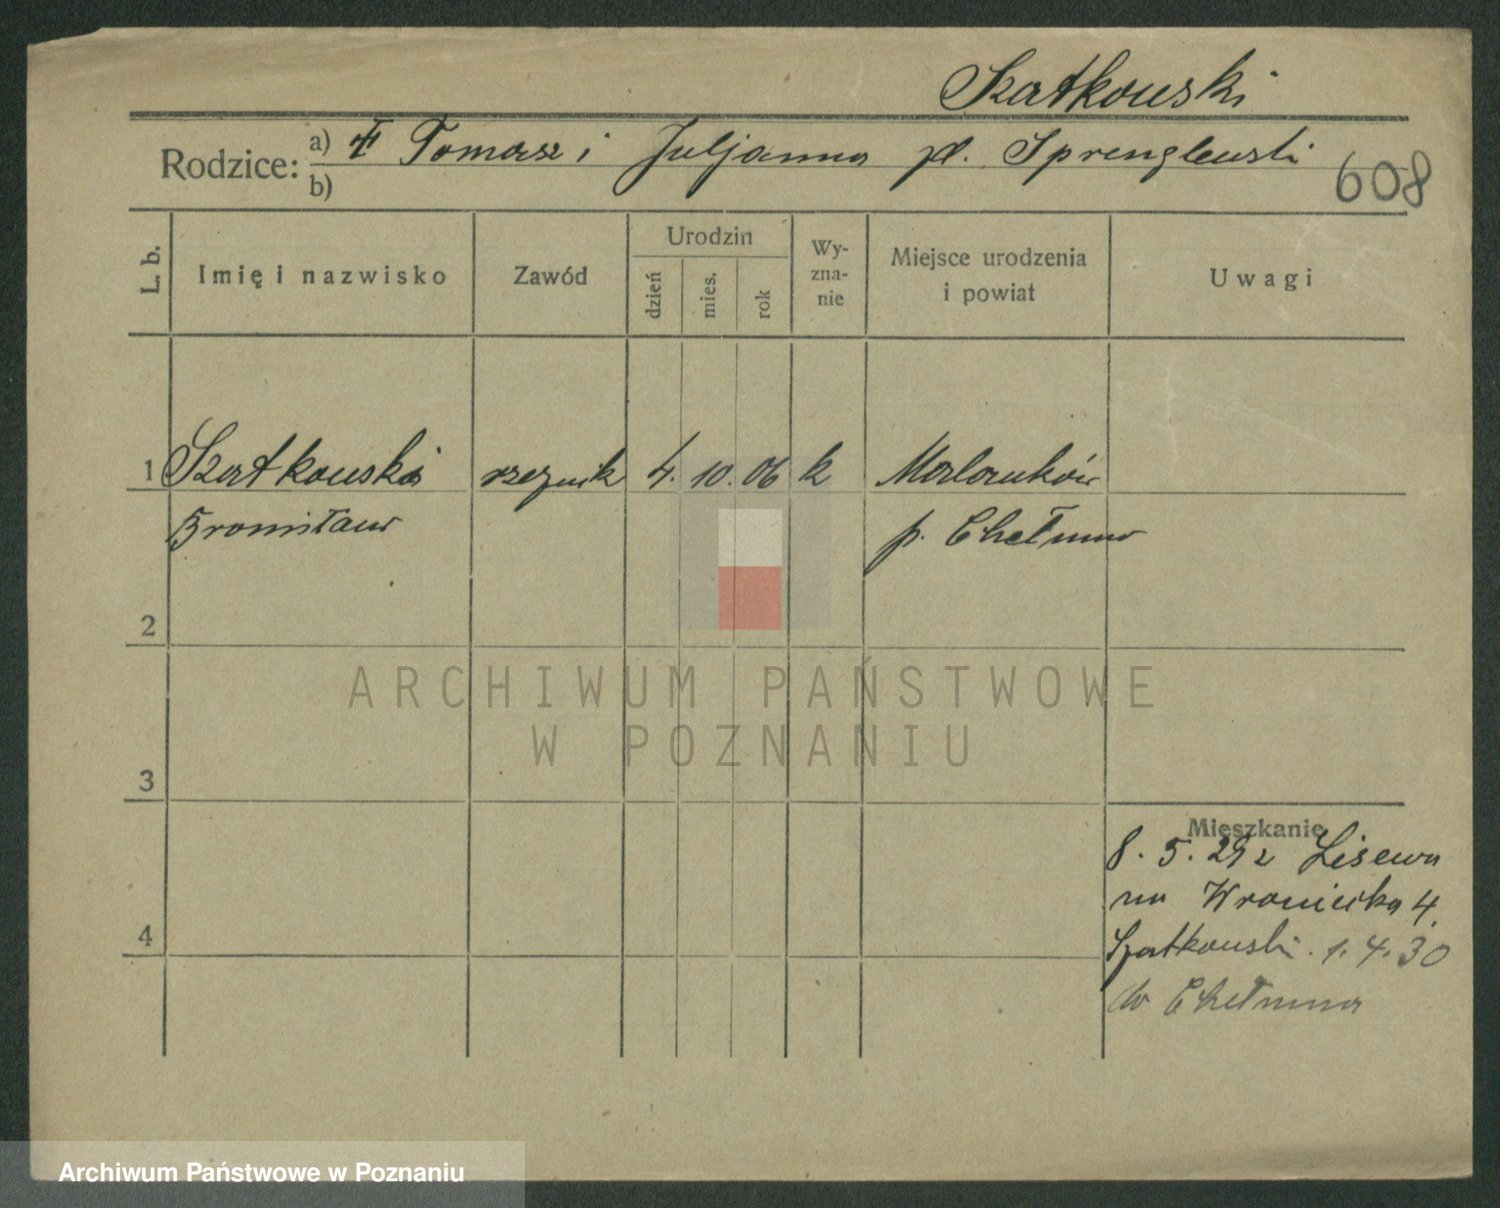 Szatkowski
Rodzice: a) Tomasz i Juljanna zd. Sprenglewski
b)
608
L. b.
Imię i nazwisko
Zawód
Urodzin
dzień
mies.
rok
Wy-
zna-
nie
Miejsce urodzenia
i powiat
Uwagi
1 Szatkowski rzeźnik 4. 10. 06 k
Bronisław p. Chełmno
2
3
4
Mieszkanie
8. 5. 29 z Lisewa
na Wroniecka 4.
Szatkowski. 1. 4. 30
do Chełmna
ARCHIWUM PAŃSTWOWE
W POZNANIU
Archiwum Państwowe w Poznaniu